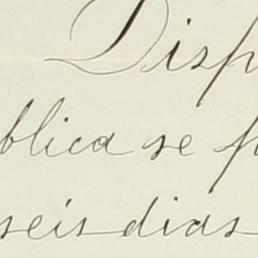 Disp
blica se p
seis dias